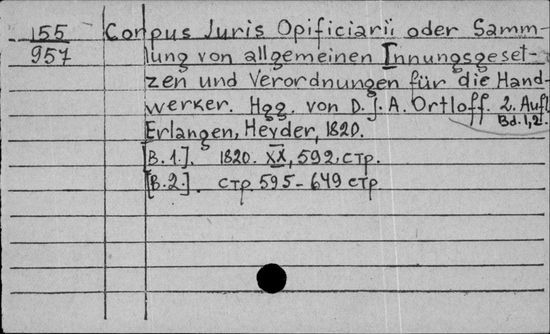 155 Corpus Juris Opificiarii oder Samm-
957 lung von allgemeinen Innungsgeset-
zen und Verordnungen für die Hand-
werker. Hgg. von D. J. A. Ortloff. 2. Aufl.
Bd. 1,2.
Erlangen, Heyder, 1820.
[B. 1.]. 1820. XX, 592, стр.
[B. 2.]. стр. 595-649 стр.